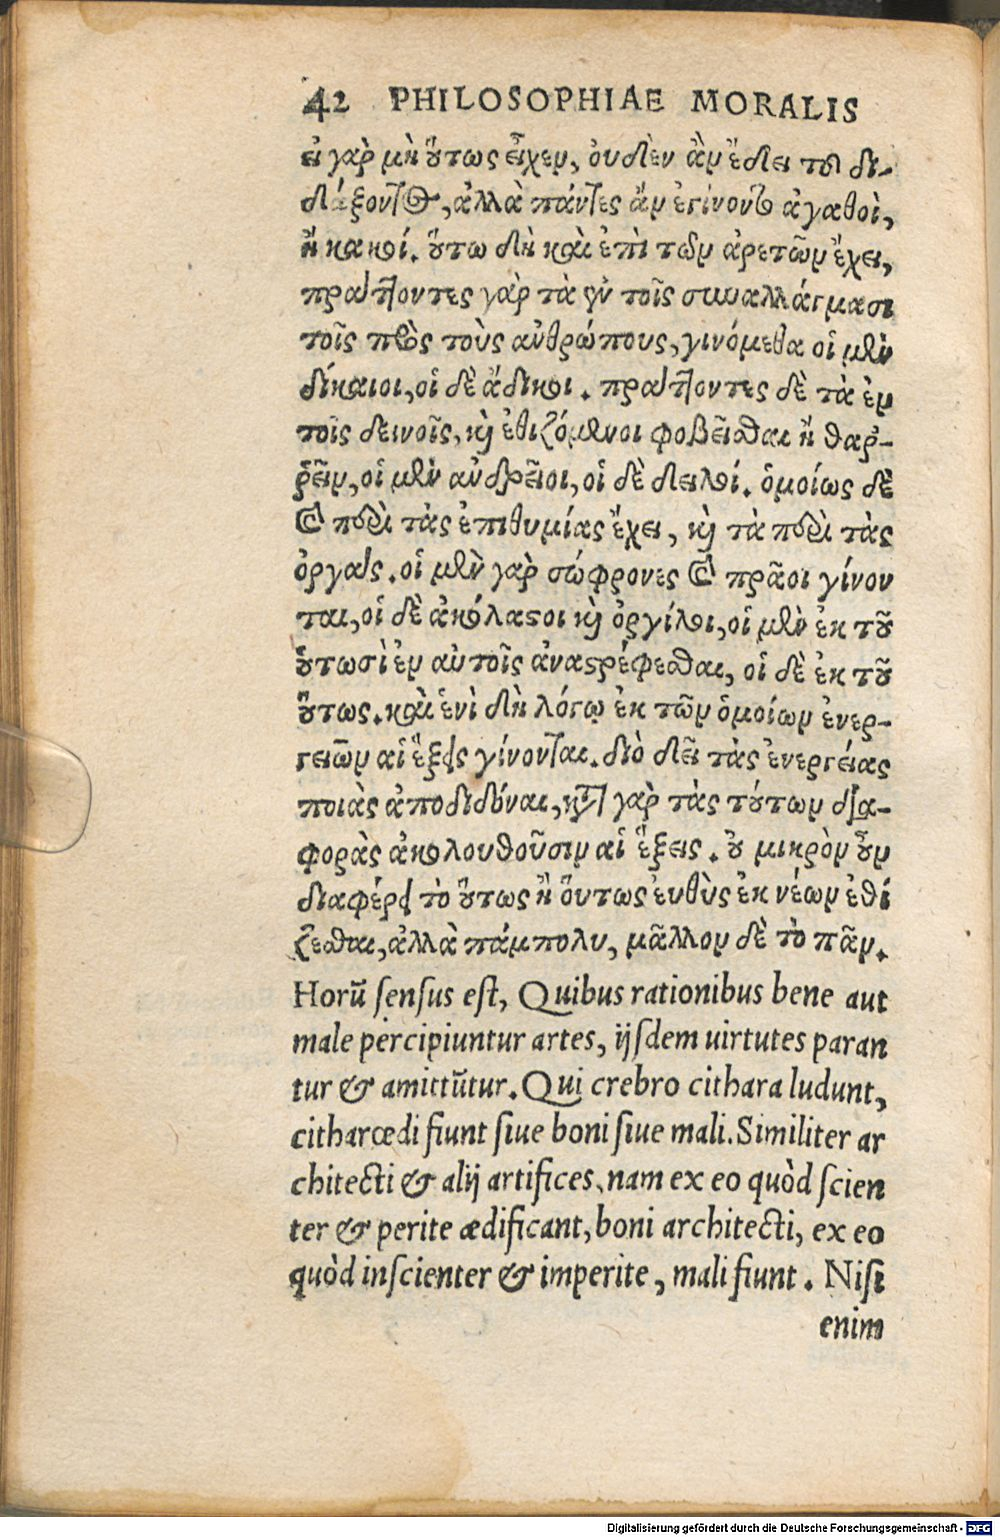 42 PHILOSOPHIAE MORALIS
εἰ γὰρ μὴ ὅυτως εἶχεν, ὀυδὲν ἂν ἔδει τοῦ δι-
δάξοντος, ἀλλὰ πάντες ἄν ἐγίνοντο ἀγαθοὶ,
ἢ κακοί. ὅυτω δὴ καὶ ἐπὶ τῶν ἀρετῶν ἔχει,
πράττοντες γὰρ τὰ ἐν τοῖς συναλλάγμασι
τοῖς πρὸς τοὺς ἀνθρώπους, γινόμεθα οἱ μὲν
δίκαιοι, οἱ δὲ ἄδικοι. πράττοντες δὲ τὰ ἐν
τοῖς δεινοῖς, καὶ ἐθιζόμενοι φοβεῖσθαι ἢ θαρ-
ῥεῖν, οἱ μὲν ἀνδρεῖοι, οἱ δὲ δειλοί. ὁμοίως δὲ
καὶ περὶ τὰς ἐπιθυμίας ἔχει, καὶ τὰ περὶ τὰς
ὀργάς. οἱ μὲν γὰρ σώφρονες καὶ πρᾶοι γίνον
ται, οἱ δὲ ἀκόλαστοι καὶ ὀργίλοι, οἱ μὲν ἐκ τοῦ
ὁυτωσὶ ἐν αὐτοῖς ἀναστρέφεσθαι, οἱ δὲ ἐκ τοῦ
ὅυτως. καὶ ἑνὶ δὴ λόγῳ ἐκ τῶν ὁμοίων ἐνερ-
γειῶν αἱ ἕξεις γίνονται. διὸ δεῖ τὰς ἐνεργείας
ποιὰς ἀποδιδόναι, κατὰ γὰρ τὰς τούτων δια-
φορὰς ἀκολουθοῦσιν αἱ ἕξεις. ὀυ μικρὸν οὖν
διαφέρει τὸ ὅυτως ἢ ὅυτως ἐυθὺς ἐκ νέων ἐθί
ζεσθαι, ἀλλὰ πάμπολυ, μᾶλλον δὲ τὸ πᾶν.
Horū sensus est, Quibus rationibus bene aut
male percipiuntur artes, ijsdem uirtutes paran
tur & amittūtur. Qui crebro cithara ludunt,
citharœdi fiunt siue boni siue mali. Similiter ar
chitecti & alij artifices, nam ex eo quòd scien
ter & perite ædificant, boni architecti, ex eo
quòd inscienter & imperite, mali fiunt. Nisi
enim
Digitalisierung gefördert durch die Deutsche Forschungsgemeinschaft - DFG